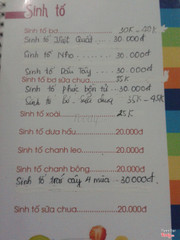 Sinh tố
Sinh tố bơ 30K -
Sinh tố Việt Quất 30.000đ
Sinh tố Nho 30.000đ
Sinh tố Dâu Tây 30.000đ
Sinh tố bơ sữa chua 35K
Sinh tố phúc bồn tử 30.000đ
Sinh tố bơ - sữa chua 35K - 45K
Sinh tố xoài 25K
Sinh tố dưa hấu 20.000đ
Sinh tố chanh leo 20.000đ
Sinh tố chanh bỏng 20.000đ
Sinh tố trái cây 4 mùa - 30.000đ
Sinh tố sữa chua 20.000đ